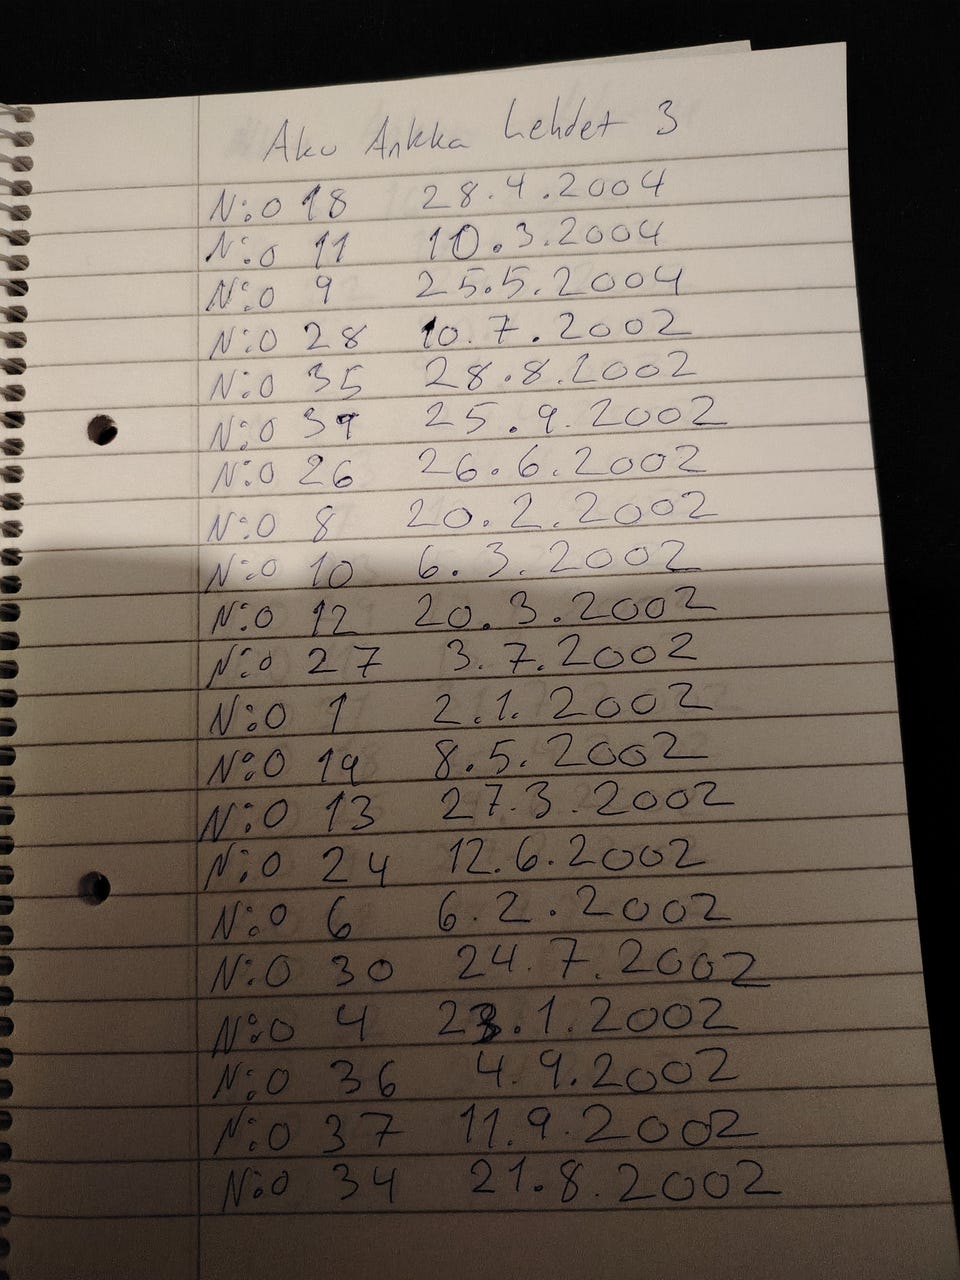 Aku Ankka Lehdet 3
N:o 18 28.4.2004
N:o 11 10.3.2004
N:o 9 25.5.2004
N:o 28 10.7.2002
N:o 35 28.8.2002
N:o 39 25.9.2002
N:o 26 26.6.2002
N:o 8 20.2.2002
N:o 10 6.3.2002
N:o 12 20.3.2002
N:o 27 3.7.2002
N:o 1 2.1.2002
N:o 19 8.5.2002
N:o 13 27.3.2002
N:o 24 12.6.2002
N:o 6 6.2.2002
N:o 30 24.7.2002
N:o 4 23.1.2002
N:o 36 4.9.2002
N:o 37 11.9.2002
N:o 34 21.8.2002